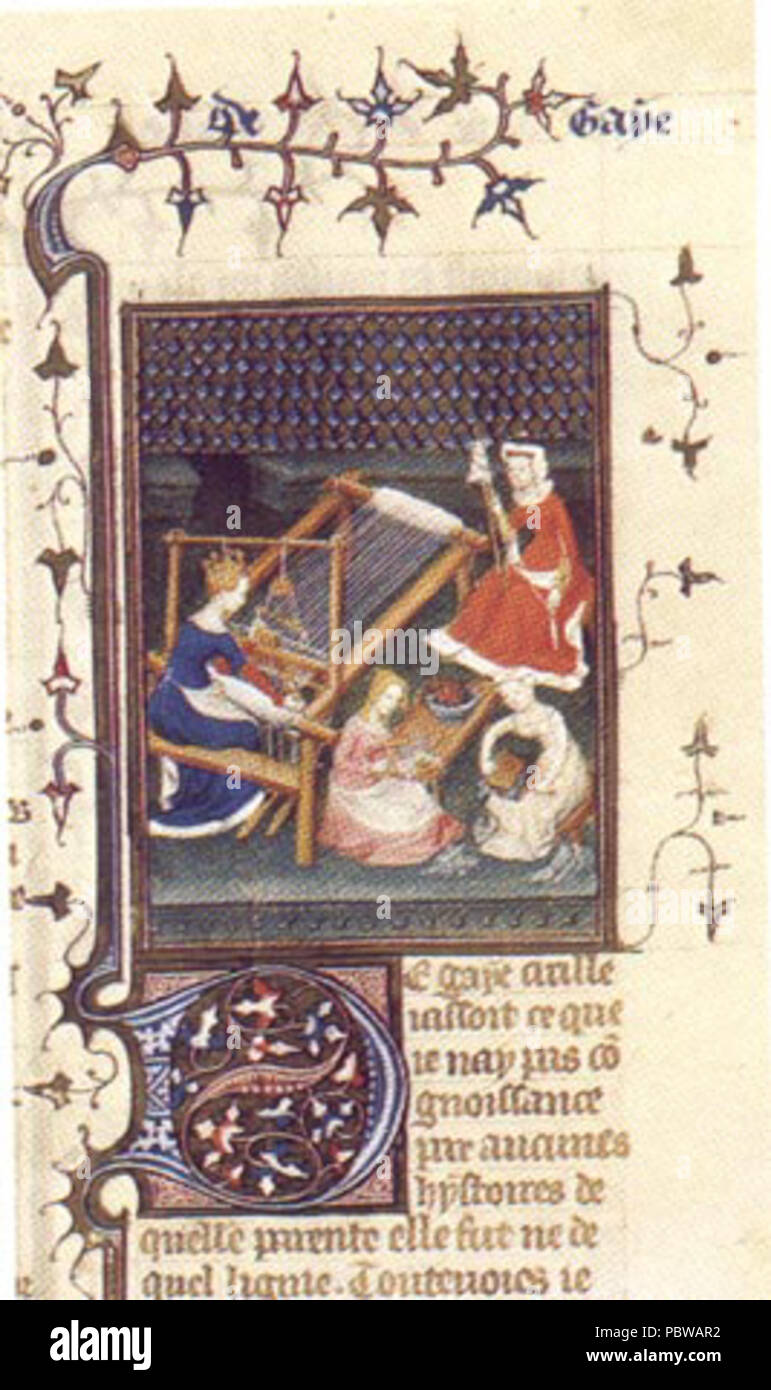 de Gaÿe
E gaÿe cirille
iassoit ce que
ie nay pas cō
gnoissance
par aucunes
hÿstoires de
quelle parente elle fut ne de
quel lignie. Toutevoies ie
alamy
Image ID: PBWAR2
www.alamy.com